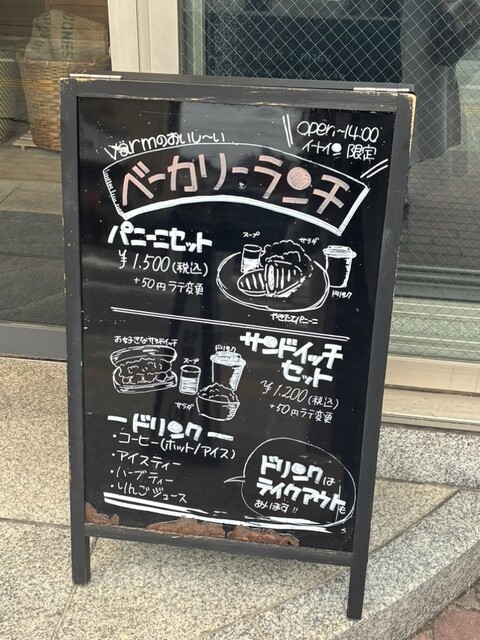 open~14:00
イートイン限定
yarmのおいし〜い
ベーカリーランチ
パニーニセット
¥1.500(税込)
+50円ラテ変更
スープ
サラダ
ドリンク
やきたてパニーニ
サンドイッチ
セット
¥1.200(税込)
+50円ラテ変更
お好きなサンドイッチ
スープ
ドリンク
サラダ
ードリンクー
・コーヒー(ホット/アイス)
・アイスティー
・ハーブティー
・りんごジュース
ドリンクは
テイクアウトも
あります!!